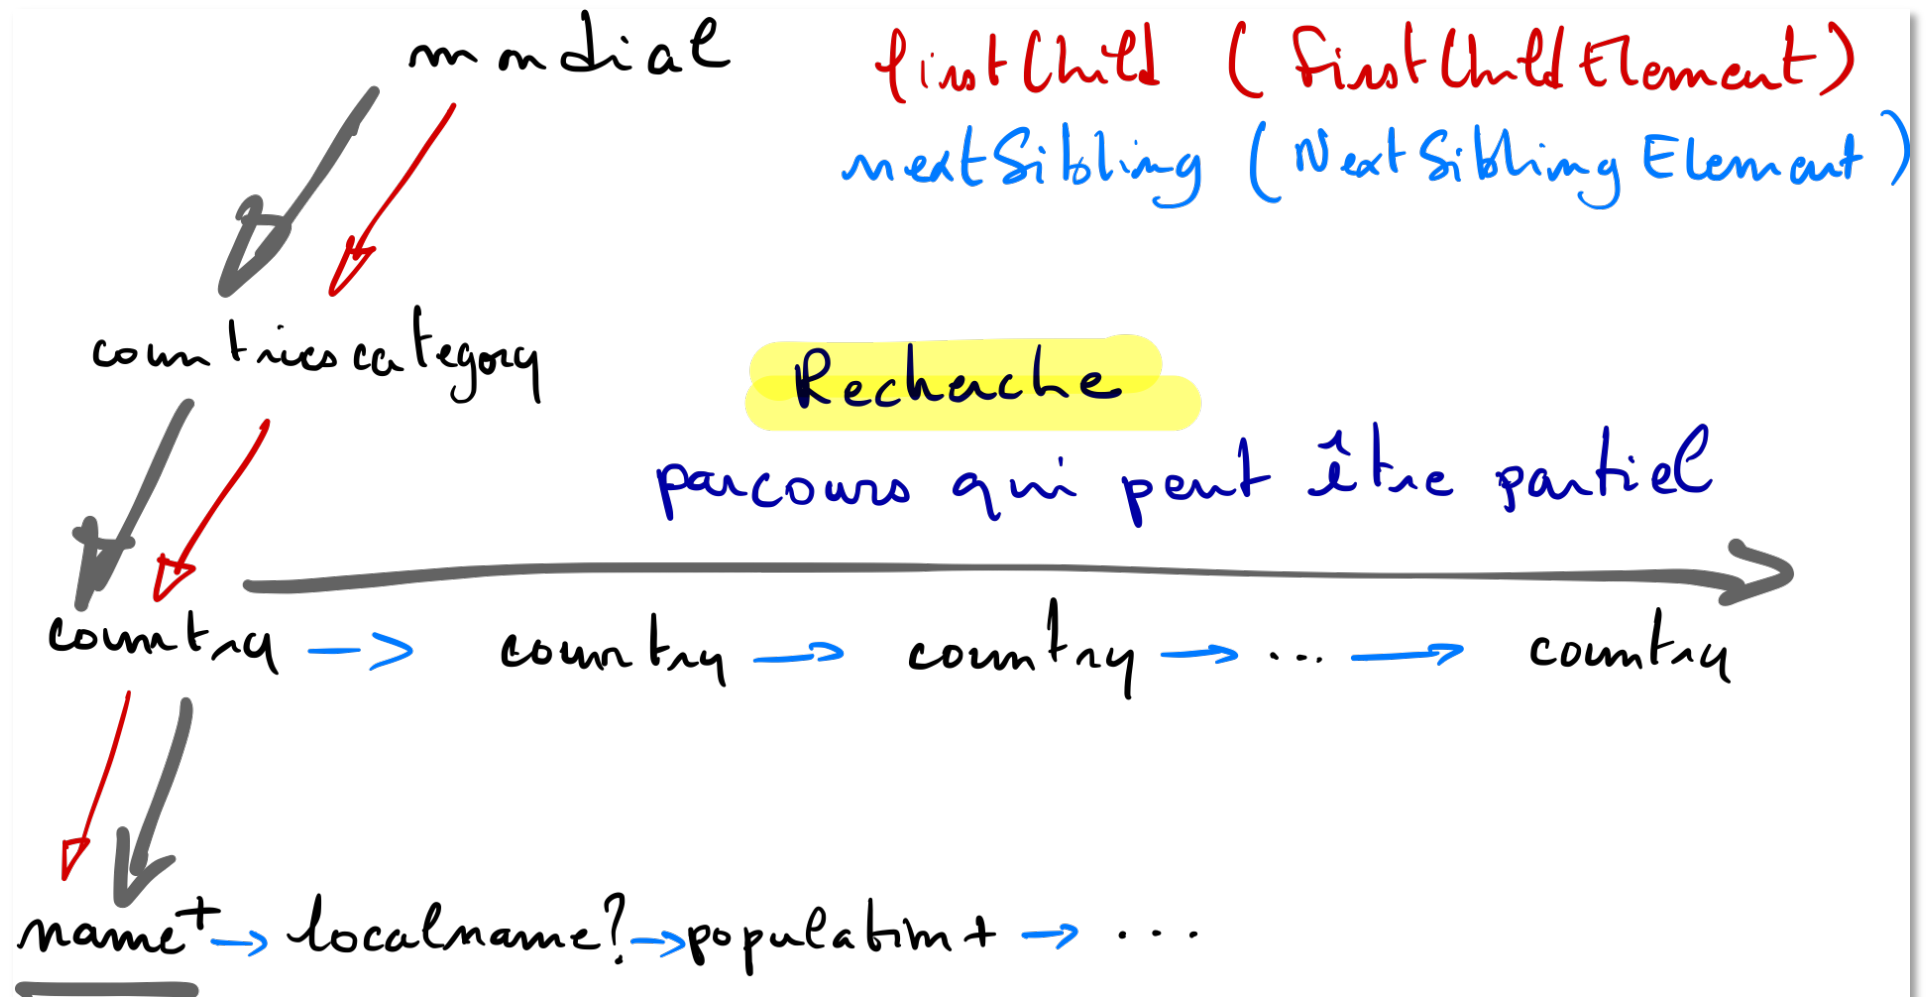 mondial
firstChild (FirstChildElement)
nextSibling (NextSiblingElement)
countriescategory
Recherche
parcours qui peut être partiel
country → country → country → ... → country
name+ → localname? → population+ → ...